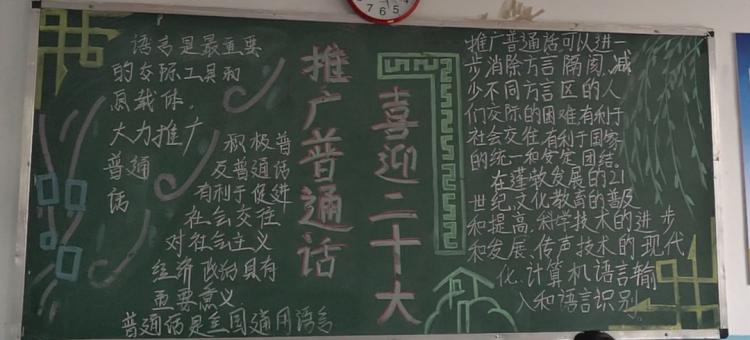 语言是最重要
的交际工具和
息载体.
大力推广
普通
话
积极普
及普通话
有利于促进
社会交往
对社会主义
经济政治具有
重要意义
普通话是全国通用语言
推广普通话
喜迎二十大
推广普通话可以进一
步消除方言隔阂,减
少不同方言区的人
们交际的困难有利于
社会交往,有利于国家
的统一和安定团结。
在蓬勃发展的21
世纪,文化教育的普及
和提高,科学技术的进步
和发展、传声技术的现代
化,计算机语言输
入和语言识别
7 6 5